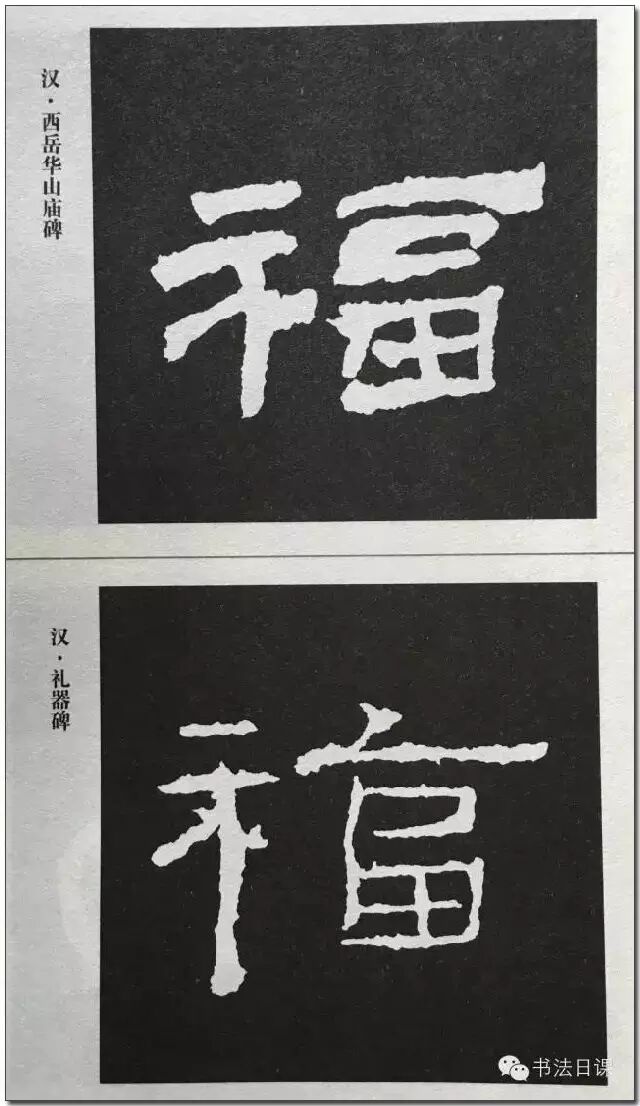 汉·西岳华山庙碑
福
汉·礼器碑
福
书法日课